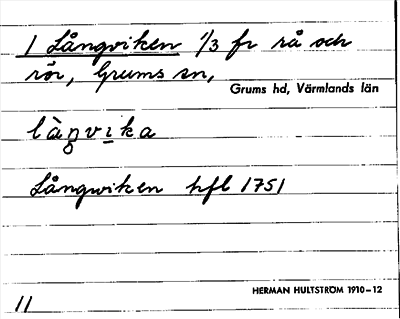 1 Långviken 1/3 fr rå och
rör, Grums sn,
Grums hd, Värmlands län
làŋvika
Långwiken hfl 1751
HERMAN HULTSTRÖM 1910–12
11